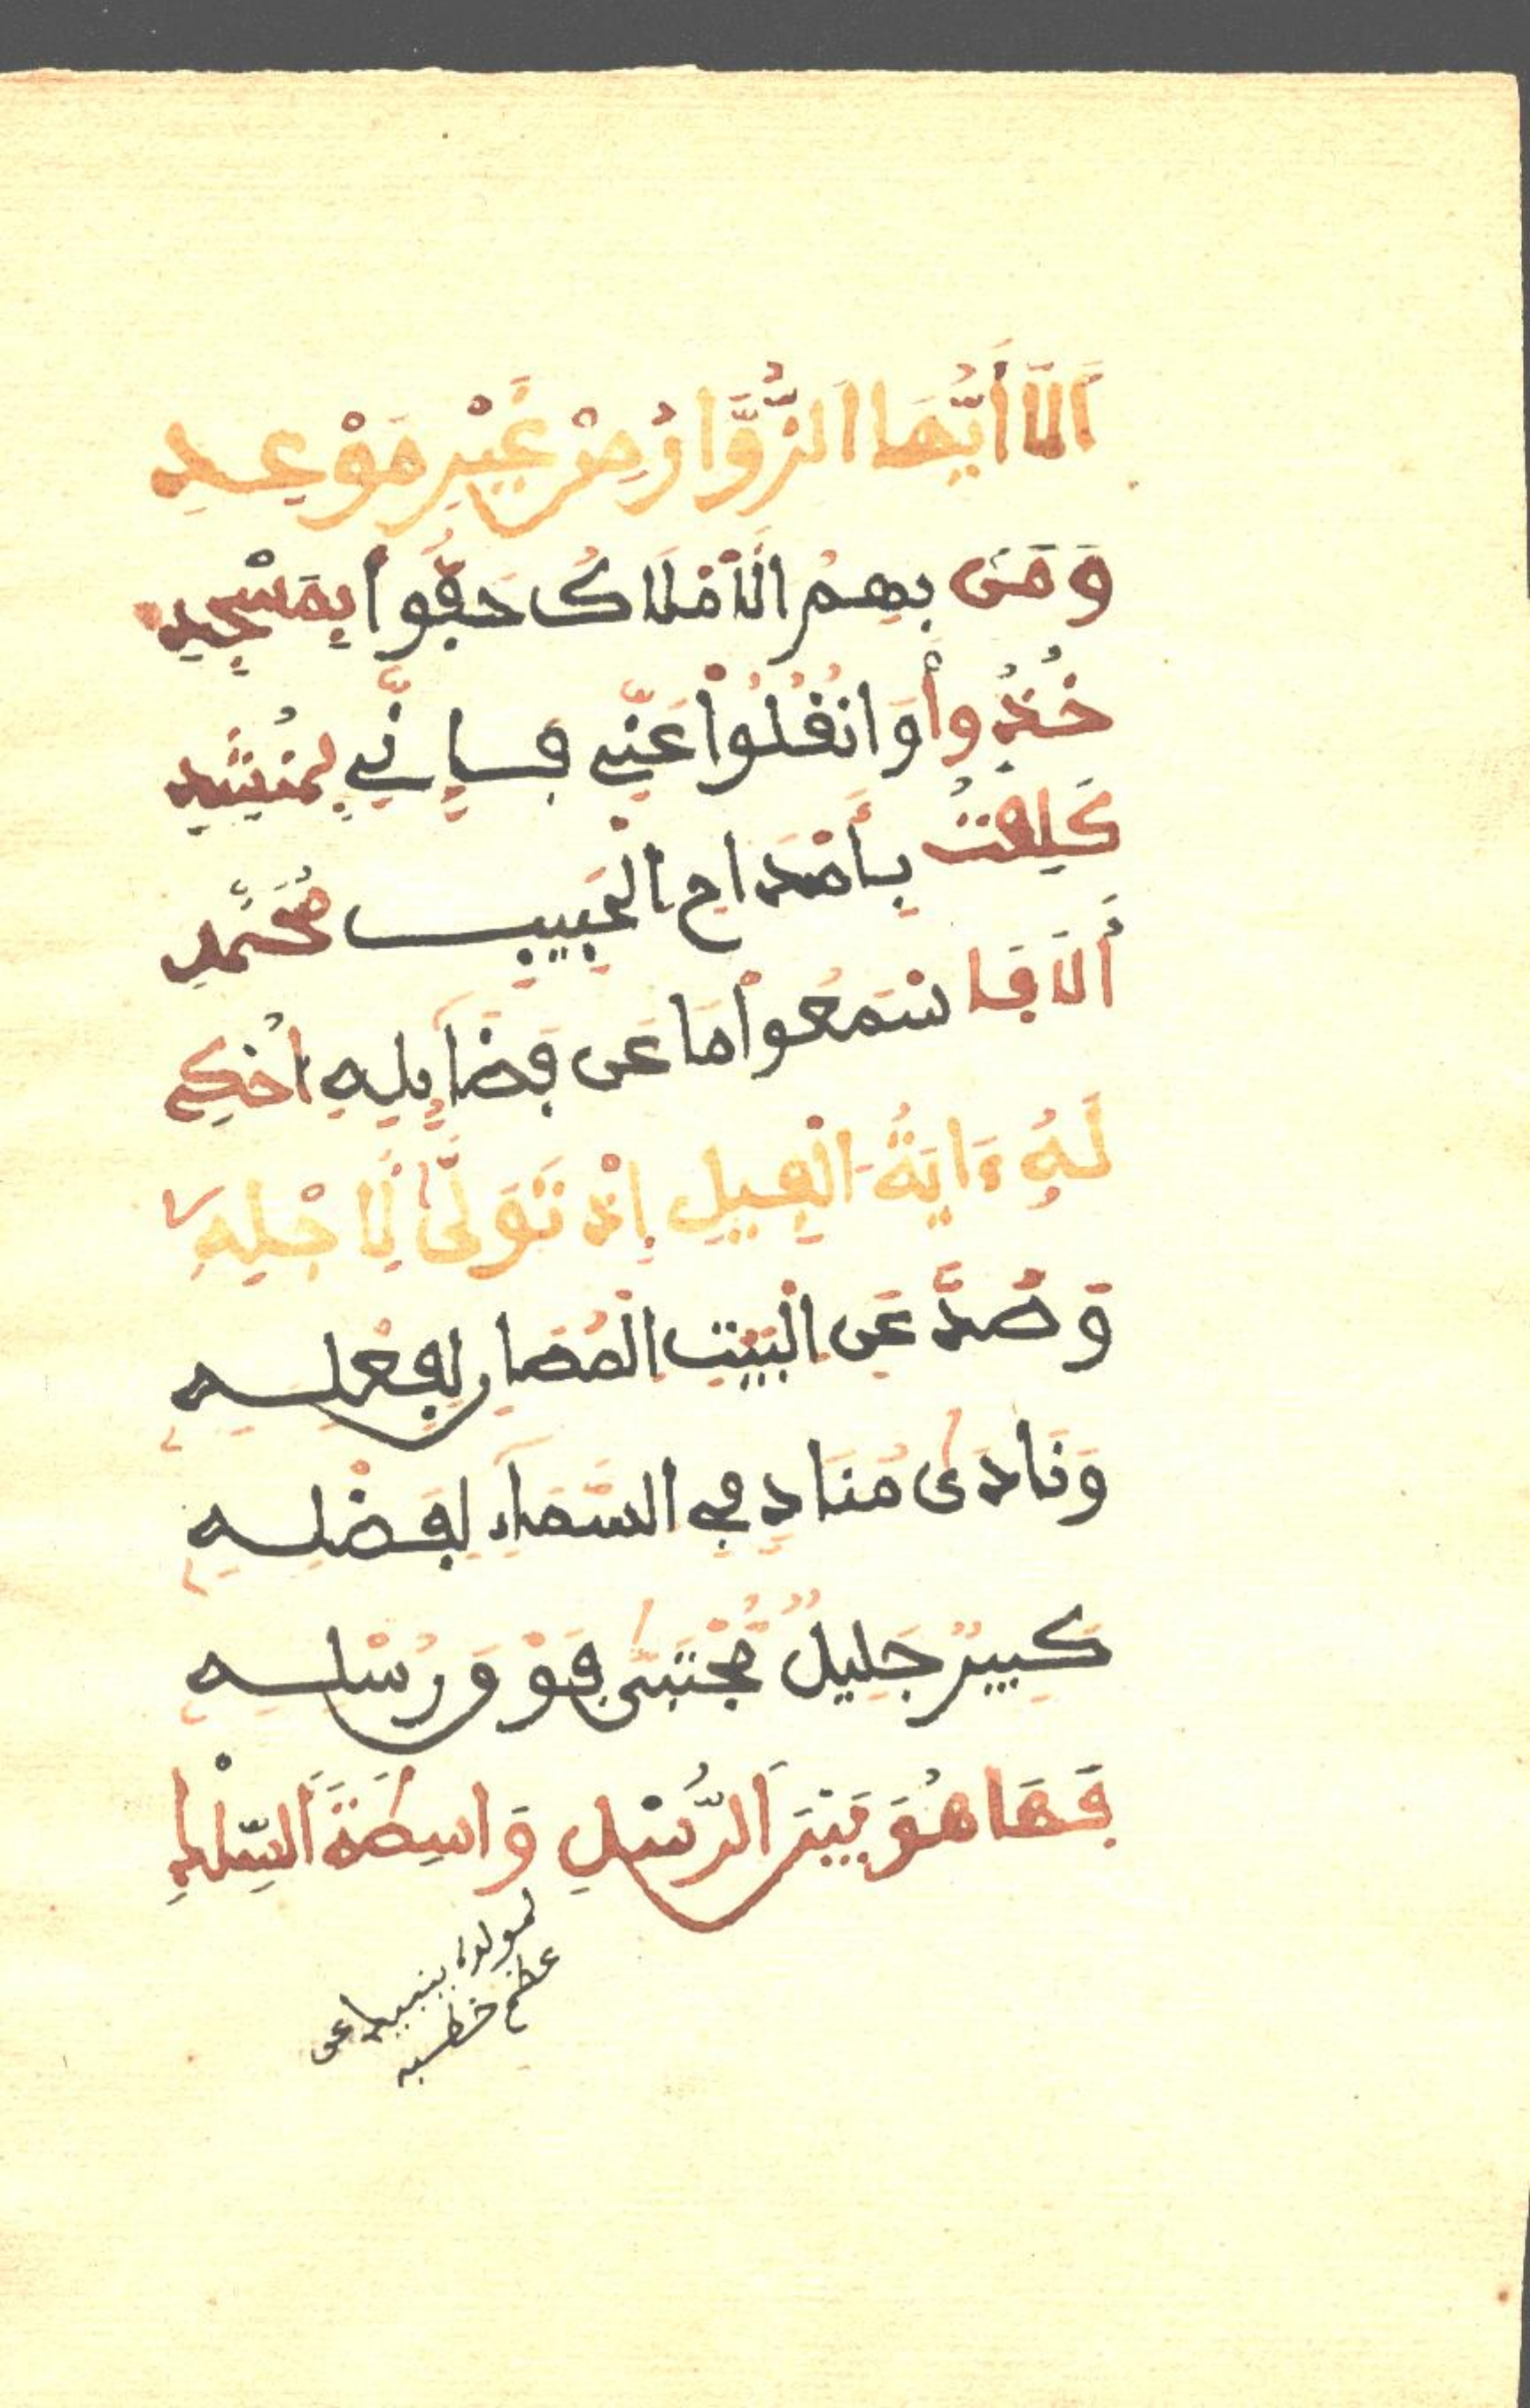 أَلَا أَيُّهَا الزُّوَّارُ مِنْ غَيْرِ مَوْعِدِ
وَمَن بِهِمُ الْأَمْلَاكُ حَفُّوا بِمَسْجِدِ
خُذُوا وَانْقُلُوا عَنِّي فَإِنِّي لَمُنْشِدِ
كَلِفْتُ بِأَمْدَاحِ الْحَبِيبِ مُحَمَّدِ
أَلَا فَاسْمَعُوا مَا عَن فَضَائِلِهِ احْكِ
لَهُ ءَايَةُ الْفِيلِ إِذْ تَوَلَّى لِأَجْلِهِ
وَصُدَّ عَنِ الْبَيْتِ الْمُصَارِ لِفِعْلِهِ
وَنَادَى مُنَادٍ فِي السَّمَاءِ لِفَضْلِهِ
كَبِيرٌ جَلِيلٌ مُجْتَبَى فَوْقَ رُسْلِهِ
فَهَا هُوَ بَيْنَ الرُّسْلِ وَاسِطَةَ السِّلْكِ
لمولده
عظم خطبه